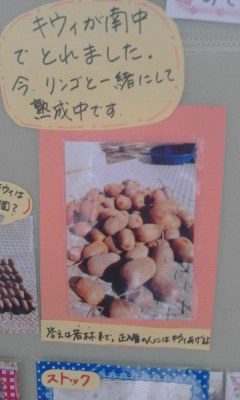 キウィが南中
でとれました。
今、リンゴと一緒にして
熟成中です。
キウィは
答えは若林まで。正解の人にはキウィあげるよ
ストック